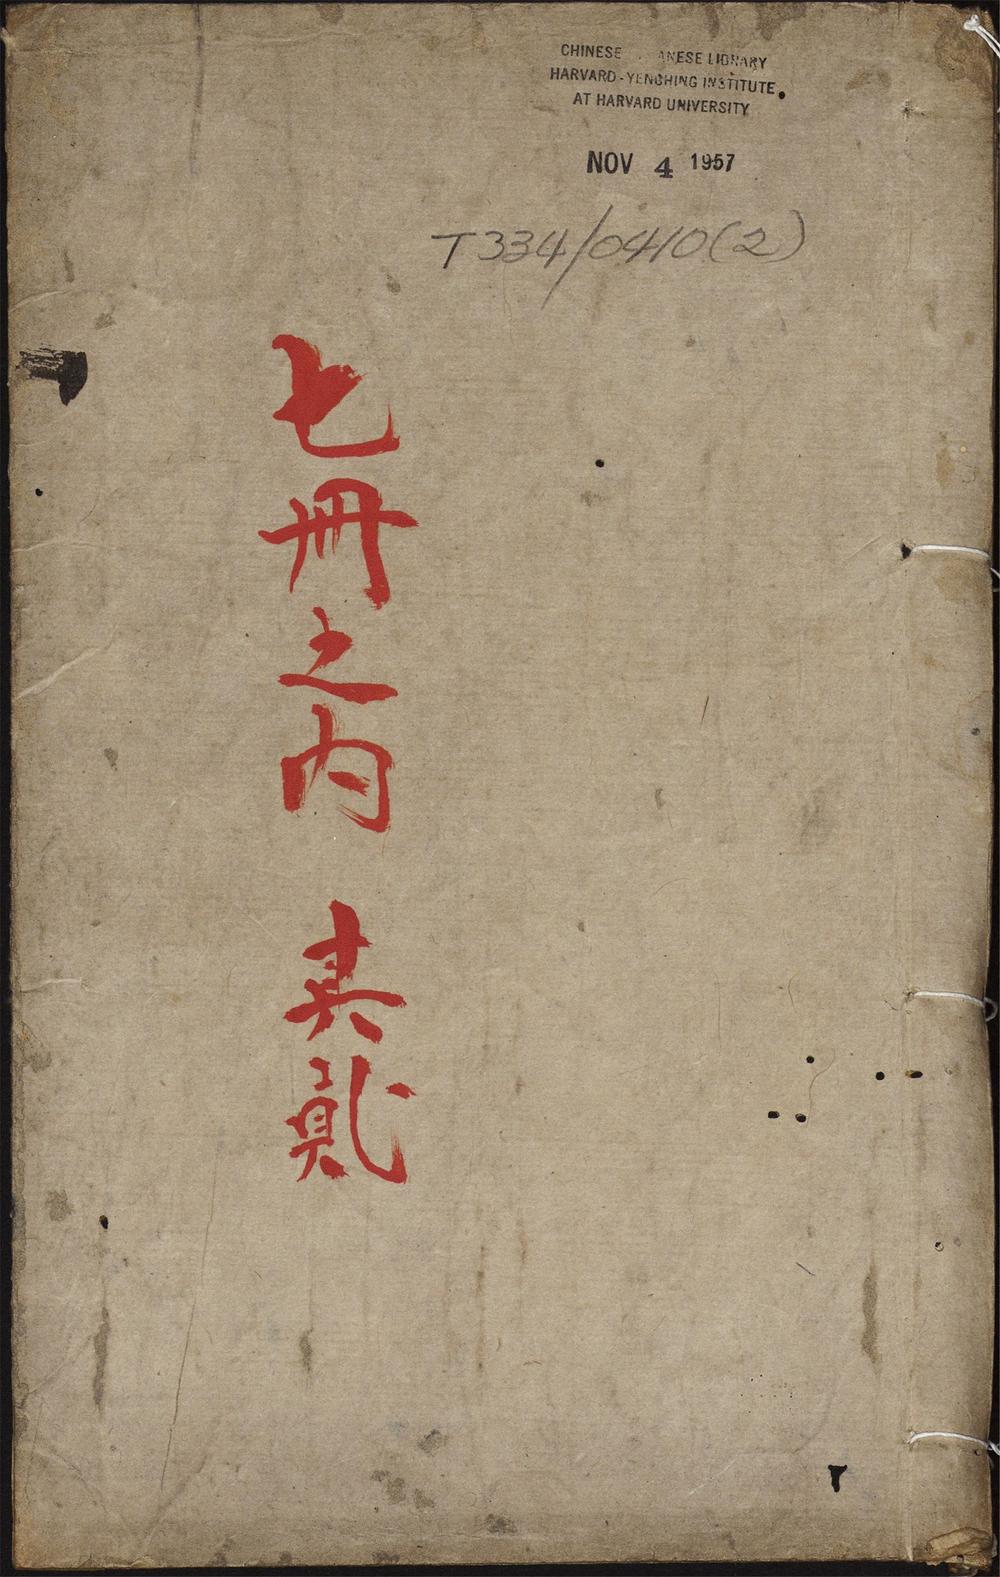 CHINESE ANESE LIBRARY
HARVARD-YENCHING INSTITUTE
AT HARVARD UNIVERSITY
NOV 4 1957
T334/0410(2)
七冊之内 其貳